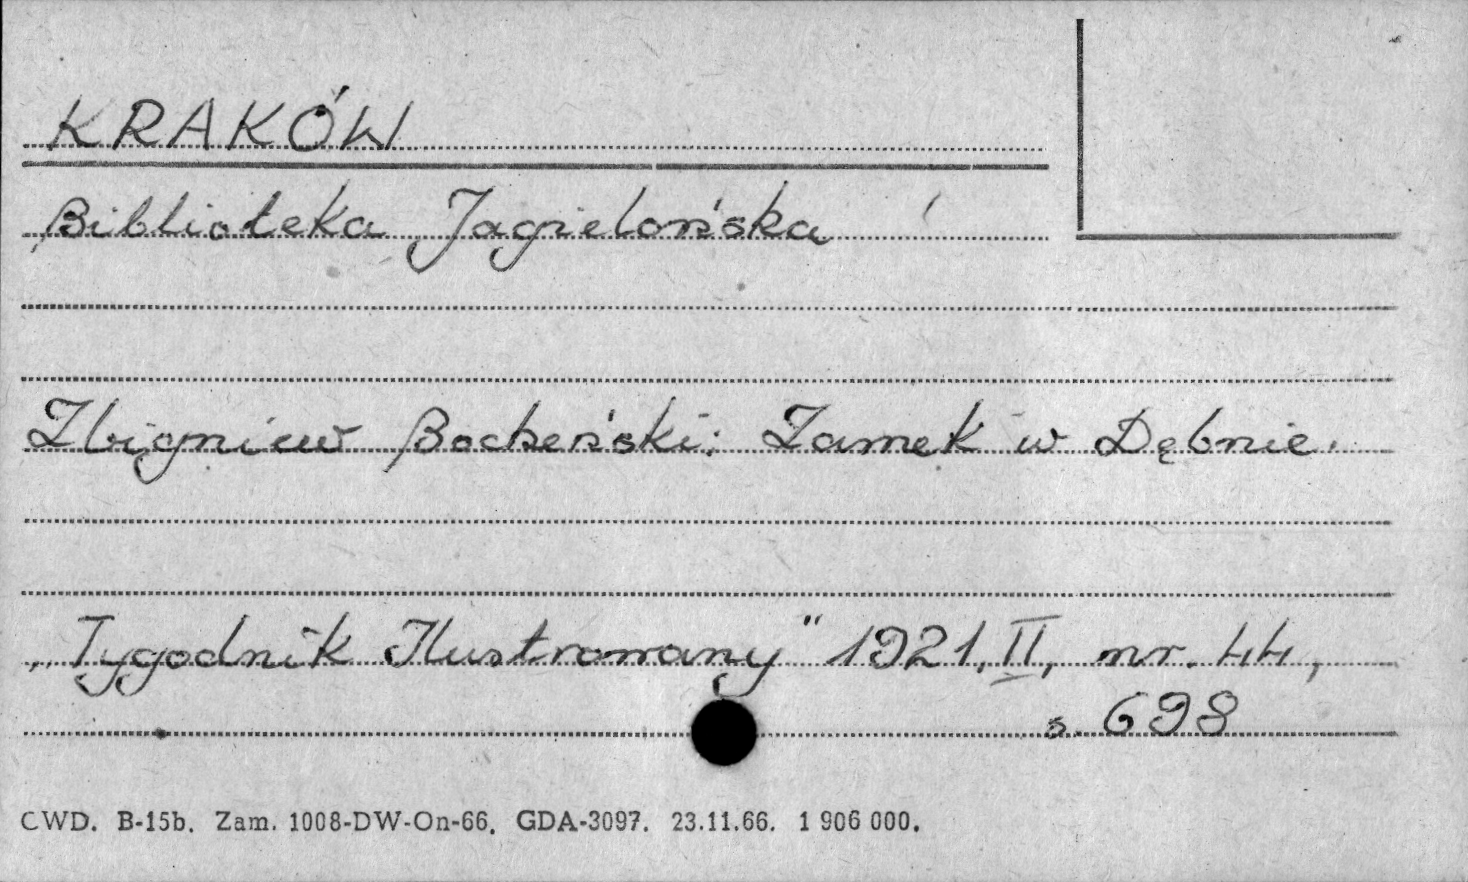 KRAKÓW
Biblioteka Jagielońska
Zbigniew Bocheński: Zamek w Dębnie.
„Tygodnik Ilustrowany" 1921, II, nr. 44,
s. 698
CWD. B-15b. Zam. 1008-DW-On-66. GDA-3097. 23.11.66. 1 906 000.